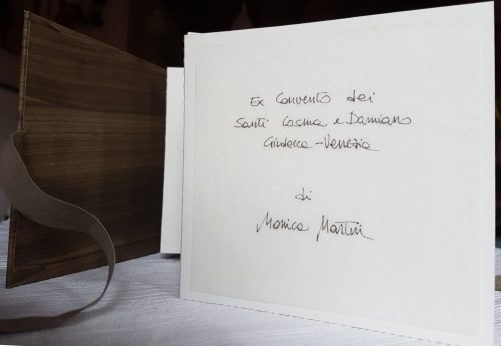 Ex Convento dei
Santi Cosma e Damiano
Giudecca - Venezia
di
Monica Martin